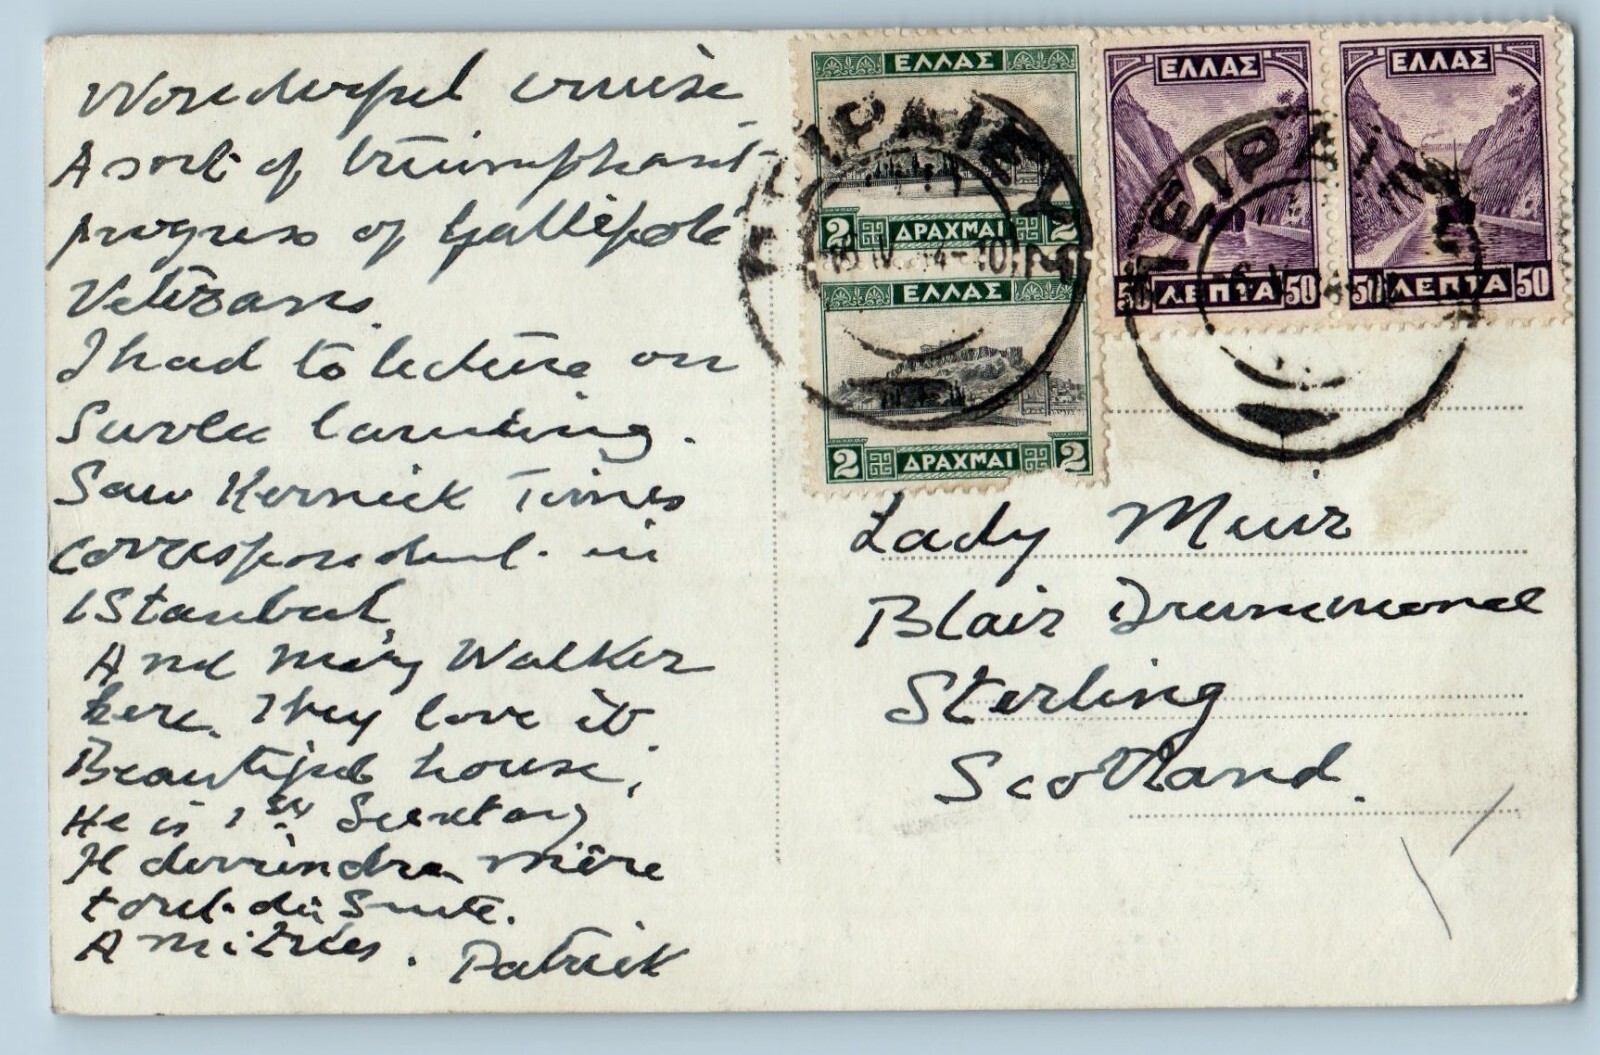 Wonderful cruise
A sort of triumphant
progress of Gallipoli
Veterans.
I had to lecture on
Suvla landing.
Saw Kernick Times
correspondent in
Istanbul,
And Mary Walker
here. They love it.
Beautiful house,
He is 1st Secretary
Il deviendra mère
tout de suite.
Amitiés. Patrick
ΕΛΛΑΣ
2 ΔΡΑΧΜΑΙ 2
ΕΛΛΑΣ
2 ΔΡΑΧΜΑΙ 2
ΕΛΛΑΣ
50 ΛΕΠΤΑ 50
ΕΛΛΑΣ
50 ΛΕΠΤΑ 50
ΠΕΙΡΑΙΕΥΣ
ΠΕΙΡΑΙΕΥΣ
Lady Muir
Blair Drummond
Sterling
Scotland.